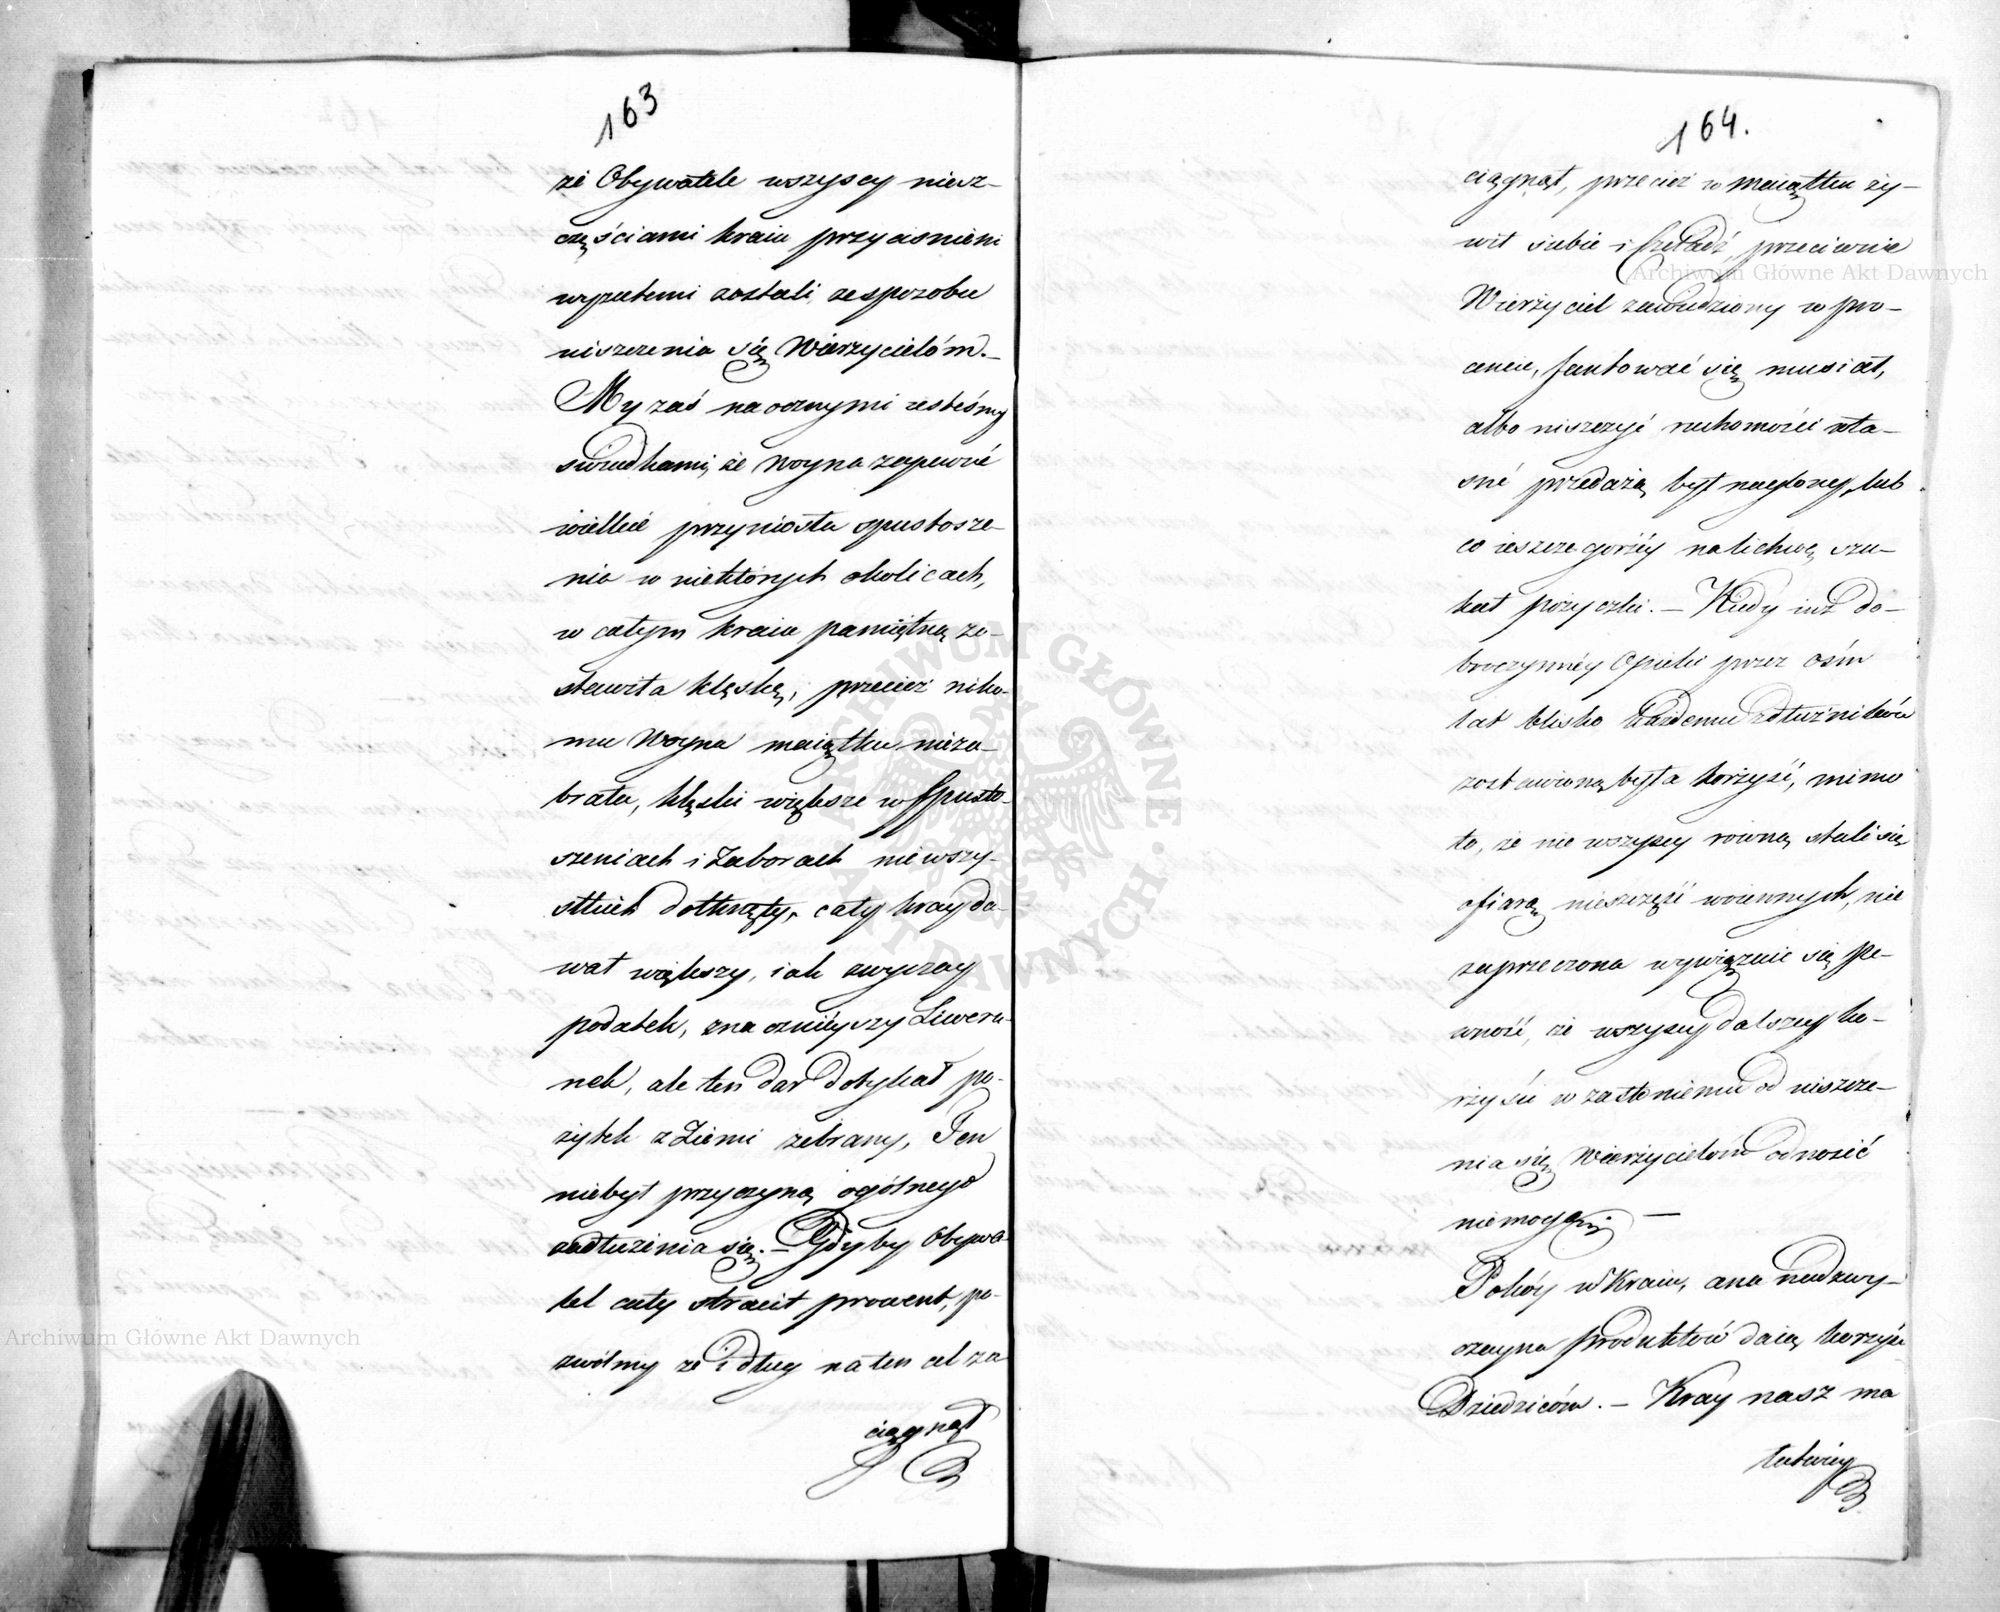 163
że Obywatele wszyscy niesz-
częściami kraiu przyciśnieni
wyzutemi zostali ze sposobu
uiszczenia się Wierzycielóm.-
My zaś naocznymi iesteśmy
świadkami, że woyna zapewne
wielkie przyniosła spustosze-
nia w niektórych okolicach,
w całym kraiu pamiętną zo-
stawiła klęskę, przecież niko-
mu Woyna maiątku nieza-
brała, klęski większe w spusto-
szeniach i zaborach niewszy-
stkich dotknęły, cały kray da-
wał większy, iak zwyczay
podatek, znacznieyszy Liweru-
nek, ale ten dar dotykał po-
żytek z Ziemi zebrany, Ten
niebył przyczyną ogólnego
zadłużenia się. - Gdyby Obywa-
tel cały stracił prowent, po-
zwólmy że i dług na ten cel za
ciągnął
164.
ciągnął, przecież w maiątku ży-
wił siebie i czeladź, przeciwnie
Wierzyciel zawiedziony w pro-
cencie, fantować się musiał,
albo niszczyć ruchomości wła-
sné przedażą był naglony, lub
co ieszcze gorzéy na lichwę szu-
kał pożyczki. - Kiedy iuż do-
broczynnéy Opieki przez ośm
lat blisko każdemu z dłużników
zostawioną była korzyść, mimo
to, że nie wszyscy równą stali się
ofiarą nieszczęść woiennych, nie
zaprzeczona wywięzuie się pe-
wność, że wszyscy dalszey ko-
rzyści w zasłonieniu od uiszcze-
nia się Wierzycielóm odnosić
niemogą. -
Pokóy w Kraiu, cena nadzwy-
czayna produktów daią korzyść
Dziedzicóm. - Kray nasz ma
łatwiey
Archiwum Główne Akt Dawnych
Archiwum Główne Akt Dawnych
ARCHIWUM GŁÓWNE AKT DAWNYCH